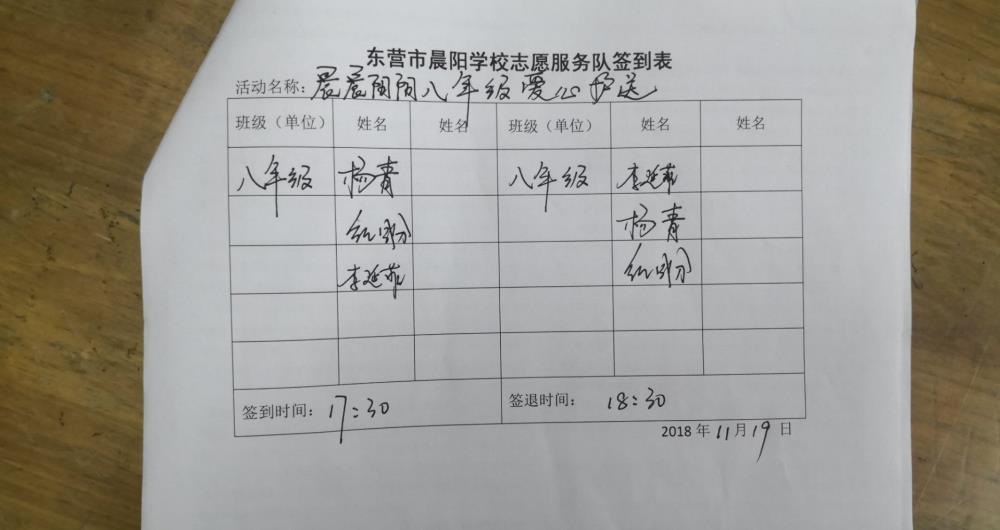 东营市晨阳学校志愿服务队签到表
活动名称：晨晨阳阳八年级爱心护送
班级（单位） 姓名 姓名 班级（单位） 姓名 姓名
八年级 杨青 八年级 李延菲
杨青
李延菲
签到时间：17:30 签退时间：18:30
2018年11月19日